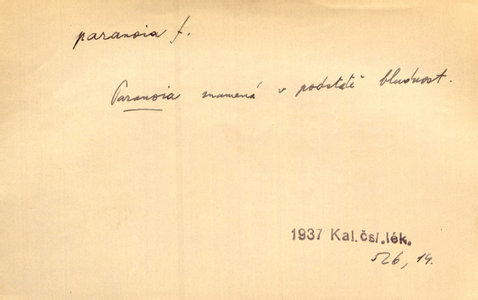 paranoia f.
Paranoia znamená v podstatě bludnost.
1937 Kal.čsl.lék.
526, 14.